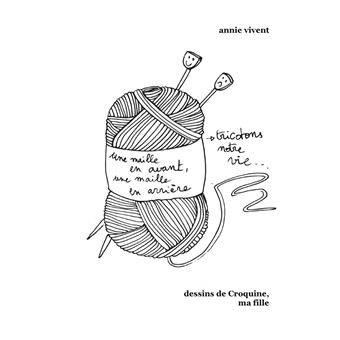 annie vivent
une maille
en avant,
une maille
en arrière
→ tricotons
notre
vie...
dessins de Croquine,
ma fille